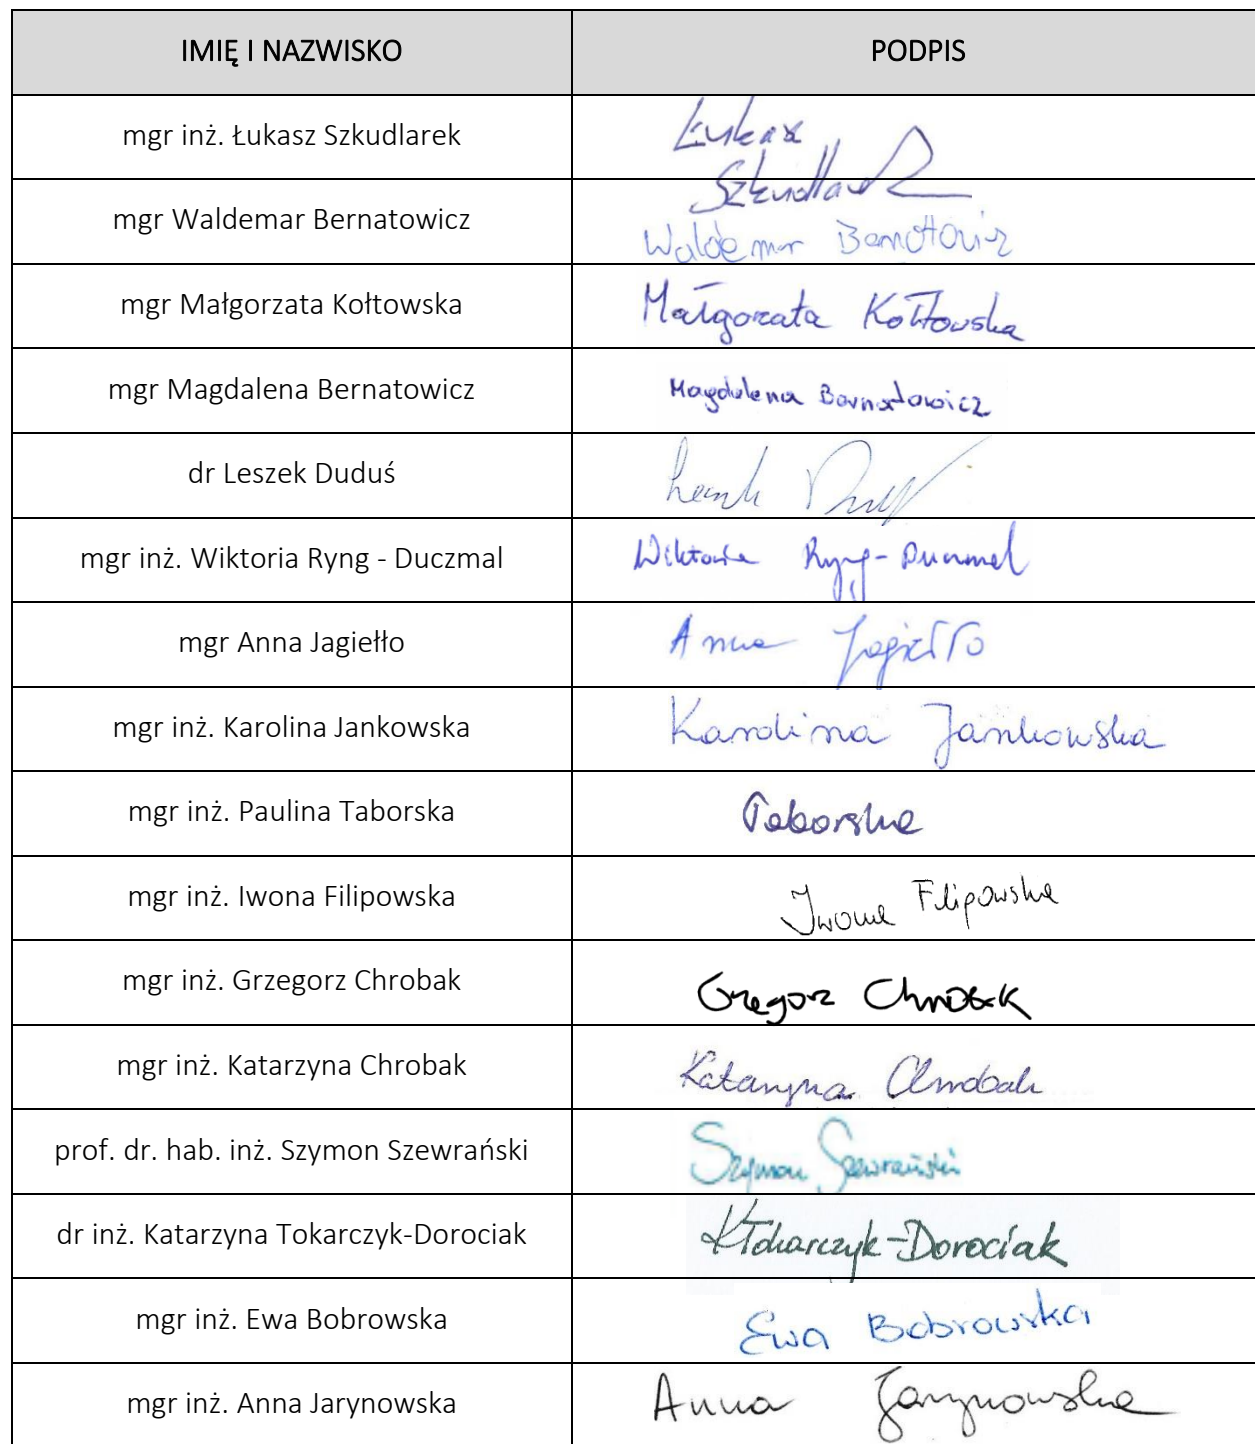 IMIĘ I NAZWISKO PODPIS
mgr inż. Łukasz Szkudlarek Łukasz
Szkudlarek
mgr Waldemar Bernatowicz Waldemar Bernatowicz
mgr Małgorzata Kołtowska Małgorzata Kołtowska
mgr Magdalena Bernatowicz Magdalena Bernatowicz
dr Leszek Duduś Leszek
mgr inż. Wiktoria Ryng - Duczmal Wiktoria Ryng-Duczmal
mgr Anna Jagiełło Anna Jagiełło
mgr inż. Karolina Jankowska Karolina Jankowska
mgr inż. Paulina Taborska Taborska
mgr inż. Iwona Filipowska Iwona Filipowska
mgr inż. Grzegorz Chrobak Grzegorz Chrobak
mgr inż. Katarzyna Chrobak Katarzyna Chrobak
prof. dr. hab. inż. Szymon Szewrański Szymon Szewrański
dr inż. Katarzyna Tokarczyk-Dorociak KTokarczyk-Dorociak
mgr inż. Ewa Bobrowska Ewa Bobrowska
mgr inż. Anna Jarynowska Anna Jarynowska